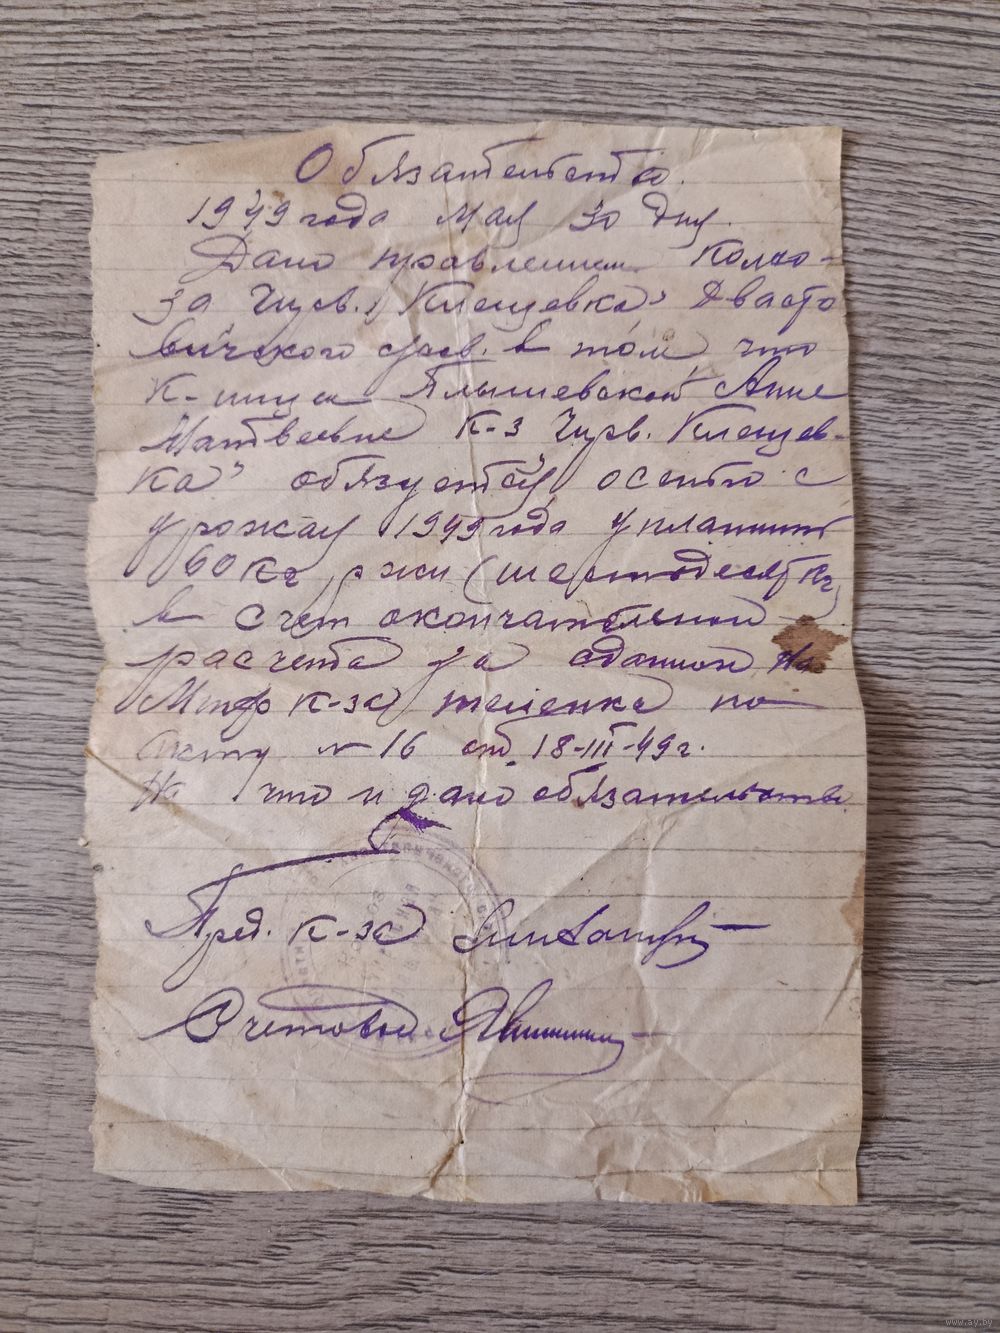 Обязательство.
1949 года мая 30 дня.
Дано правлением колхо-
за Чирв. Клещевка"
сов. в том что
к-ница Плышевской Анне
Матвеевне к-з Чирв. Клещев-
ка" обязуется осенью с
урожая 1949 года уплатить
60 кг ржи (шестьдесят кг)
в счет окончательной
расчета за сданной на
Мтф к-за теленка по
Акту № 16 от 18-III-49 г.
На что и дано обязательство.
Пред. к-за
Счетовод
www.ay.by